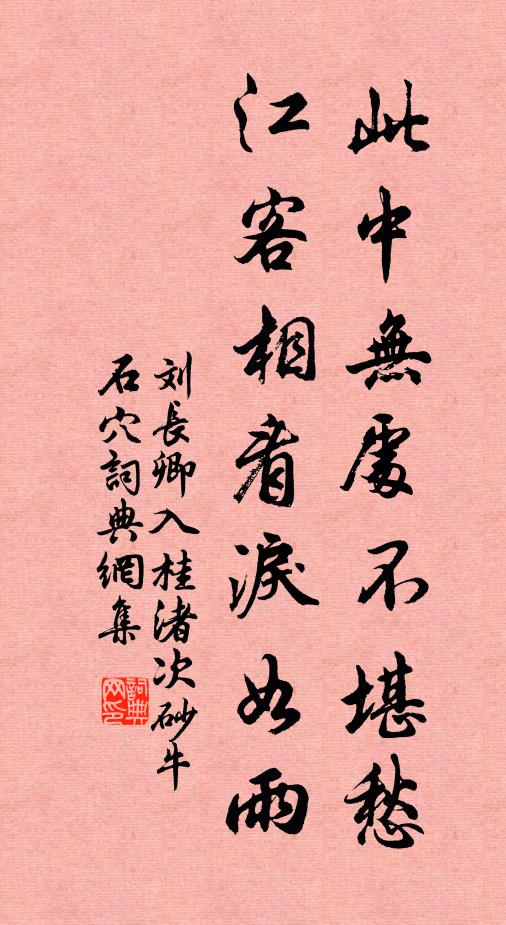 此中無處不堪愁
江客相看淚如雨
刘長卿入桂渚次砂牛
石穴詞典網集
詞典
网印